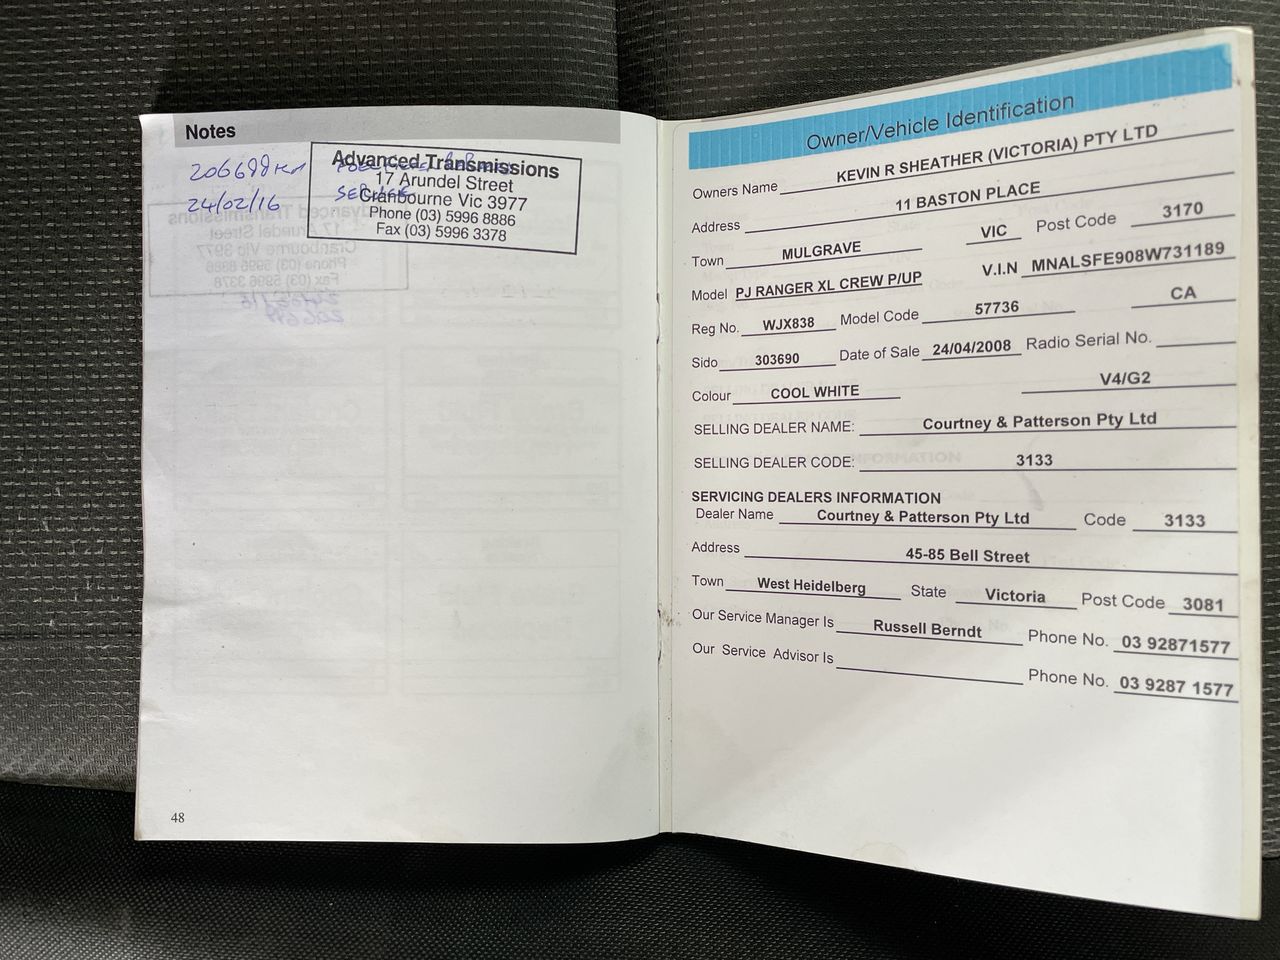 Notes
206698km
24/02/16
SERVICE
Advanced Transmissions
17 Arundel Street
Cranbourne Vic 3977
Phone (03) 5996 8886
Fax (03) 5996 3378
48
Owner/Vehicle Identification
Owners Name KEVIN R SHEATHER (VICTORIA) PTY LTD
Address 11 BASTON PLACE
Town MULGRAVE VIC Post Code 3170
Model PJ RANGER XL CREW P/UP V.I.N MNALSFE908W731189
Reg No. WJX838 Model Code 57736 CA
Sido 303690 Date of Sale 24/04/2008 Radio Serial No.
Colour COOL WHITE V4/G2
SELLING DEALER NAME: Courtney & Patterson Pty Ltd
SELLING DEALER CODE: 3133
SERVICING DEALERS INFORMATION
Dealer Name Courtney & Patterson Pty Ltd Code 3133
Address 45-85 Bell Street
Town West Heidelberg State Victoria Post Code 3081
Our Service Manager Is Russell Berndt Phone No. 03 92871577
Our Service Advisor Is Phone No. 03 9287 1577